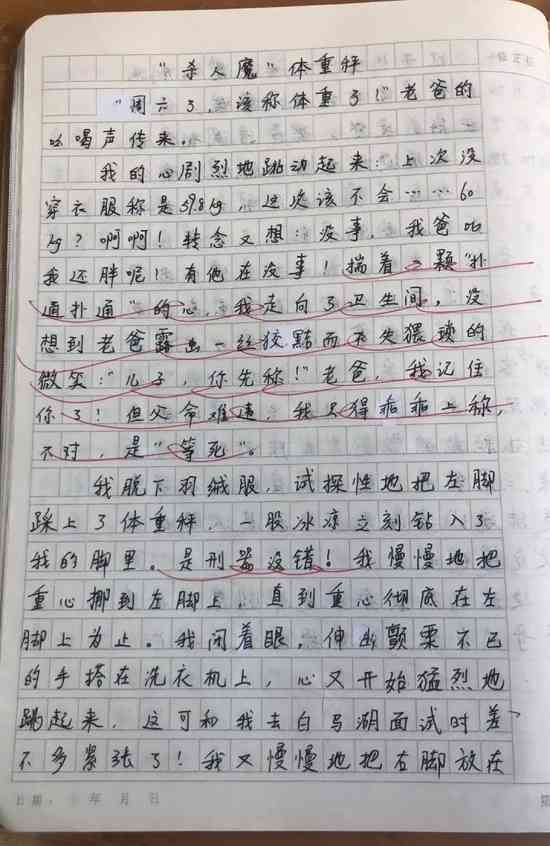 “杀人魔”体重秤
“周六了，该称体重了！”老爸的
吆喝声传来。
我的心剧烈地跳动起来：上次没
穿衣服称是39.8kg，这次该不会……60
kg？啊啊！转念又想：没事，我爸比
我还胖呢！有他在没事！揣着一颗“扑
通扑通”的心，我走向了卫生间，没
想到老爸露出一丝狡黠而不失猥琐的
微笑：“儿子，你先称！”老爸，我记住
你了！但父命难违，我只得乖乖上称，
不对，是“等死”。
我脱下羽绒服，试探性地把左脚
踩上了体重秤，一股冰凉立刻钻入了
我的脚里。是刑器没错！我慢慢地把
重心挪到左脚上，直到重心彻底在左
脚上为止。我闭着眼，伸出颤栗不已
的手搭在洗衣机上，心又开始猛烈地
跳起来，这可和我去白马湖面试时差
不多紧张了！我又慢慢地把右脚放在
日期： 年 月 日
第